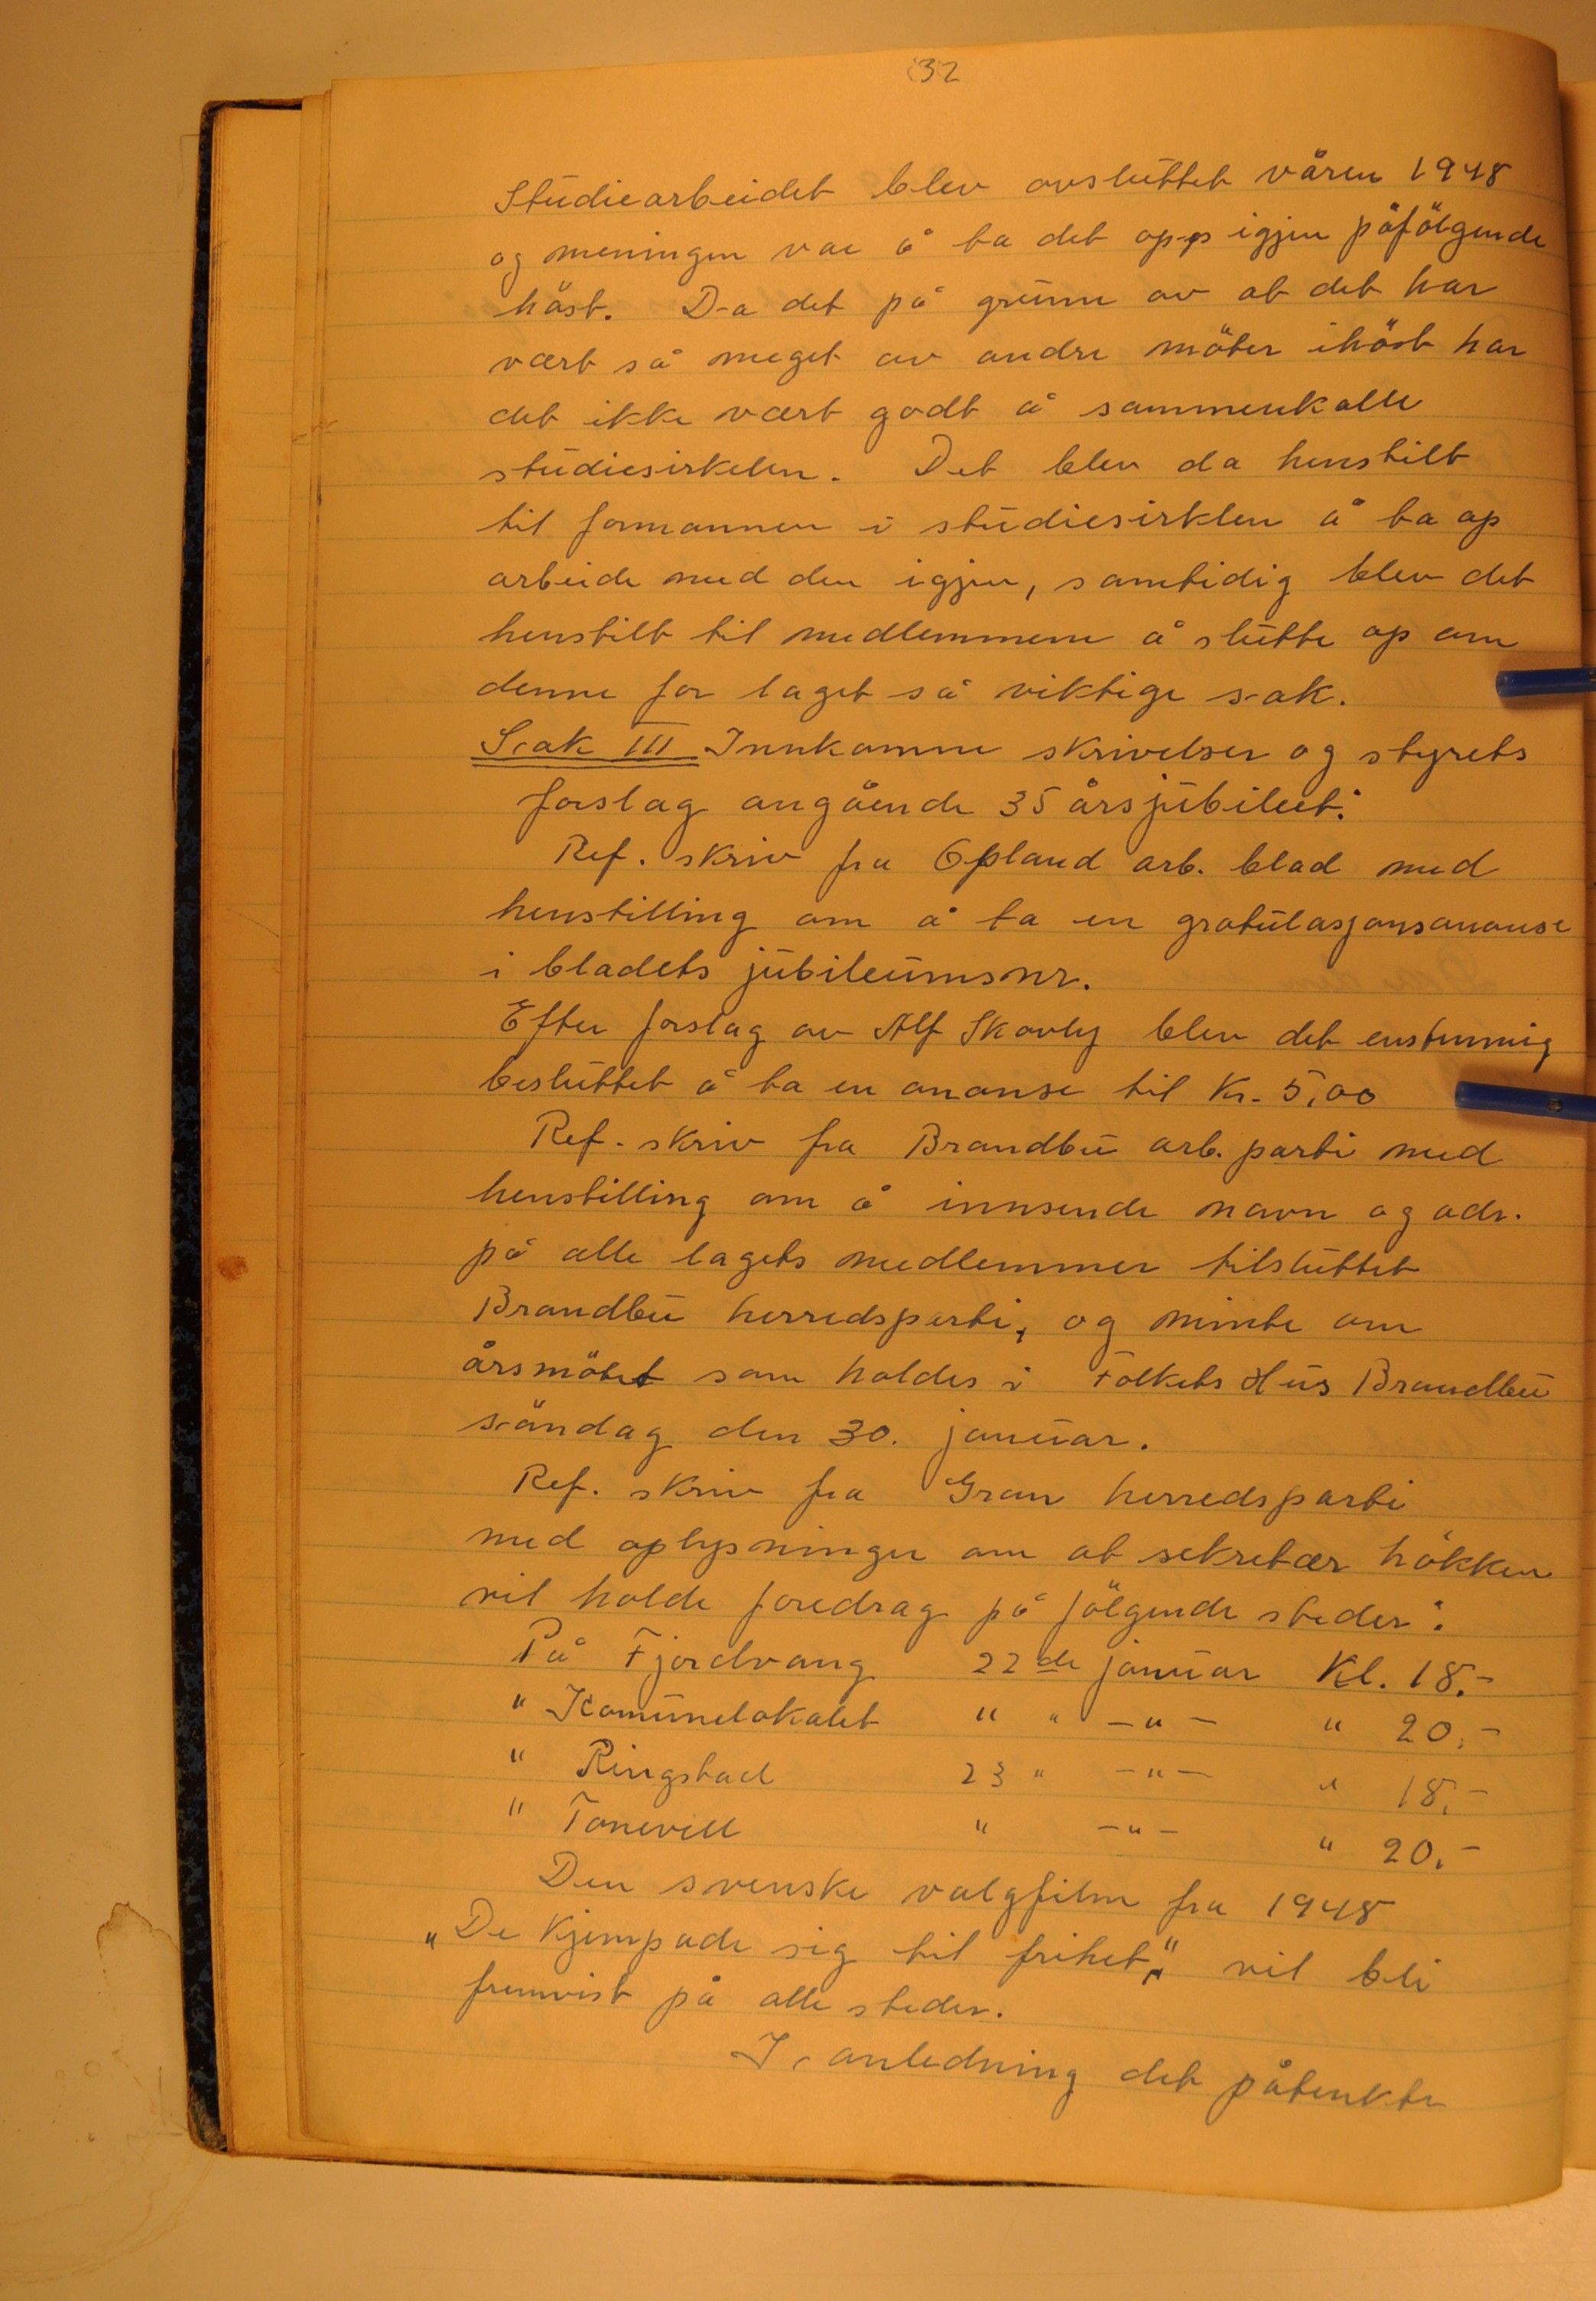 32
Studiearbeidet blev avsluttet våren 1948
og meningen var å ta det opp igjen påfölgende
höst. Da det på grunn av at det har
vært så meget av andre möter ihöst har
det ikke vært godt å sammenkalle
studiesirkelen. Det blev da henstilt
til formannen i studiesirklen å ta op
arbeide med den igjen, samtidig blev det
henstilt til medlemmene å slutte op om
denne for laget så viktige sak.
Sak III Innkomne skrivelser og styrets
forslag angående 35 årsjubileet:
Ref. skriv fra Opland arb. blad med
henstilling om å ta en gratulasjonsanonse
i bladets jubileumsnr.
Efter forslag av Alf Skovly blev det enstemmig
besluttet å ta en anonse til Kr. 5,00
Ref. skriv fra Brandbu arb. parti med
henstilling om å innsende navn og adr.
på alle lagets medlemmer tilsluttet
Brandbu herredsparti, og minte om
årsmötet som holdes i Folkets Hus Brandbu
söndag den 30. januar.
Ref. skriv fra Gran herredsparti
med oplysninger om at sekretær hökken
vil holde foredrag på fölgende steder:
På Fjordvang 22de januar Kl. 18.-
" Komunelokalet " " -"- " 20.-
" Ringstad 23 " -"- " 18.-
" Tonevell " -"- " 20.-
Den svenske valgfilm fra 1948
„De Kjempade sig til frihet" vil bli
fremvist på alle steder.
I anledning det påtenkte